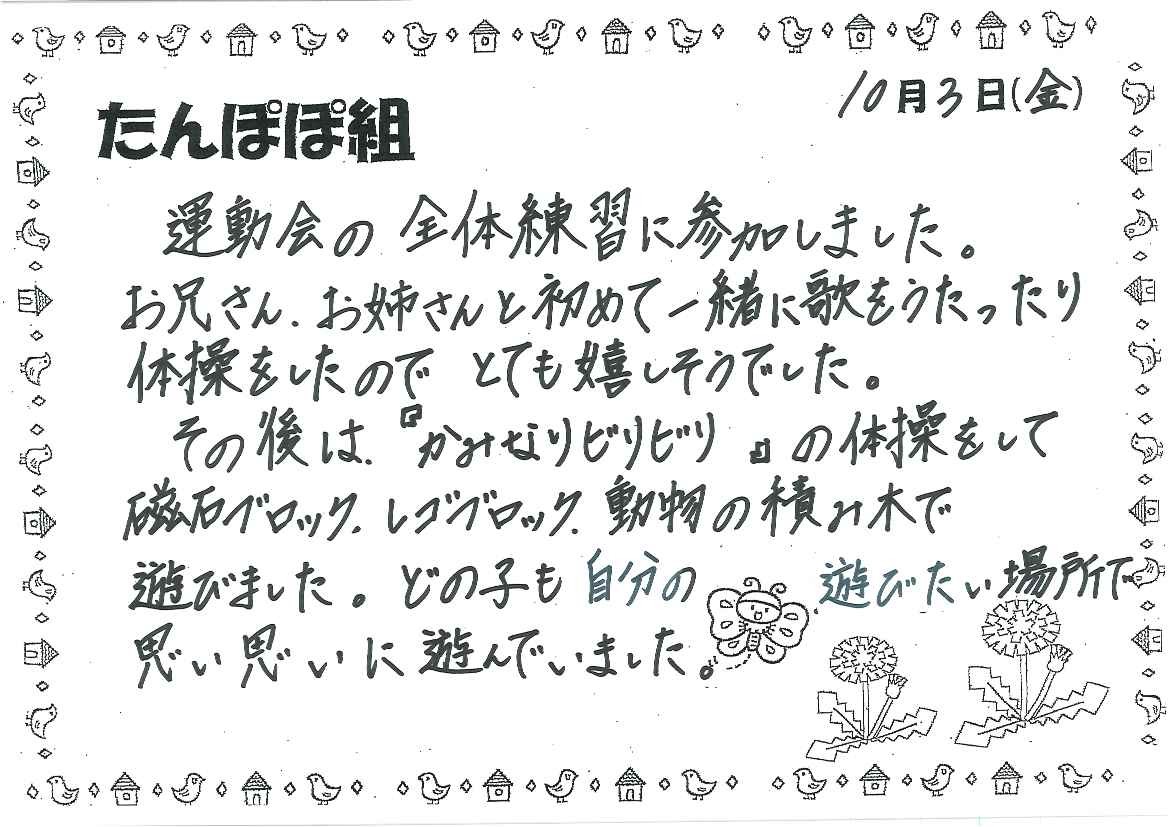 10月3日(金)
たんぽぽ組
運動会の全体練習に参加しました。
お兄さん、お姉さんと初めて一緒に歌をうたったり
体操をしたのでとても嬉しそうでした。
その後は、『かみなりビリビリ』の体操をして
磁石ブロック、レゴブロック、動物の積み木で
遊びました。どの子も自分の遊びたい場所で
思い思いに遊んでいました。